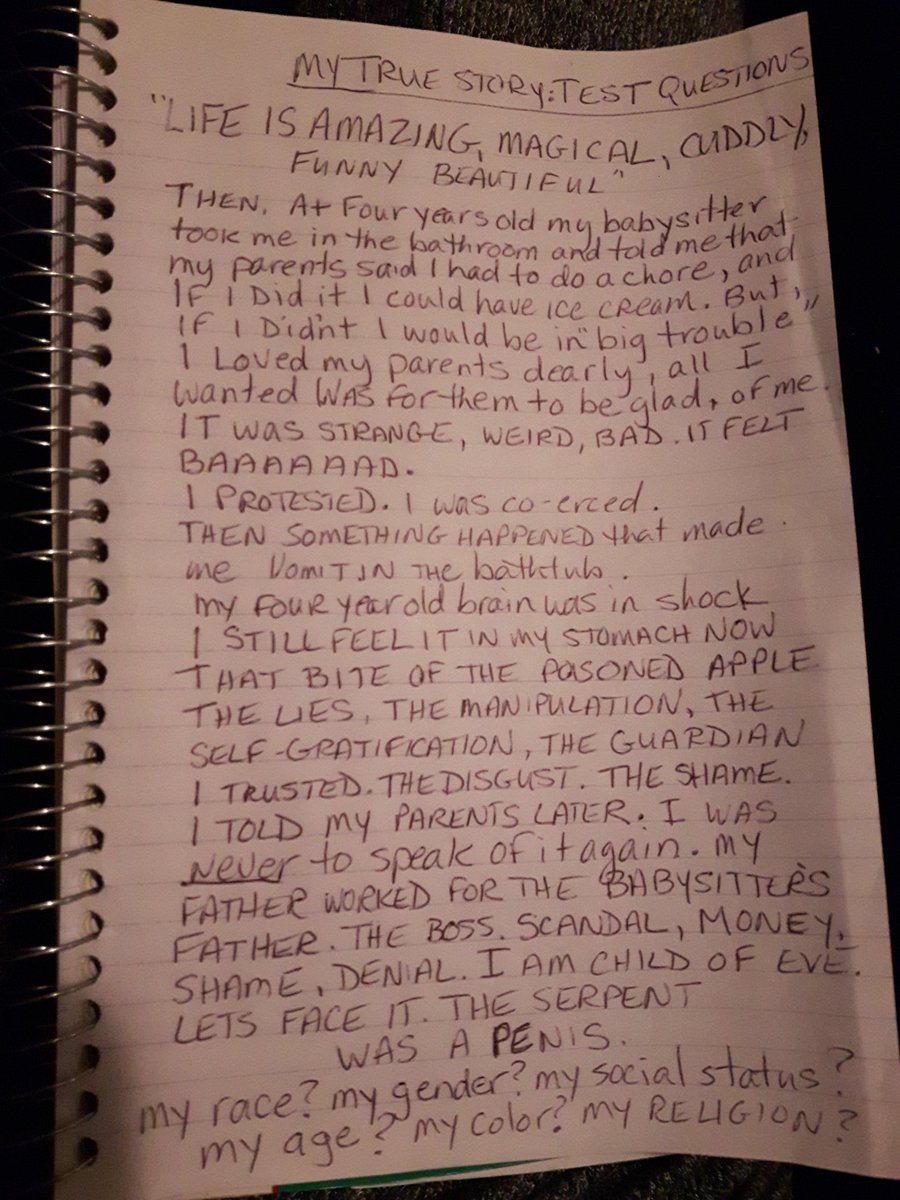 MY TRUE STORY: TEST QUESTIONS
"LIFE IS AMAZING, MAGICAL, CUDDLY,
FUNNY BEAUTIFUL"
THEN. At Four years old my babysitter
took me in the bathroom and told me that
my parents said I had to do a chore, and
IF I Did it I could have ice cream. But,
IF I Didn't I would be in "big trouble"
I Loved my parents dearly, all I
wanted WAS for them to be glad, of me.
IT WAS STRANGE, WEIRD, BAD. IT FELT
BAAAAAAD.
I PROTESTED. I was co-erced.
THEN SOMETHING HAPPENED that made
me VomiT IN THE bathtub.
my FOUR year old brain was in shock
I STILL FEEL IT IN MY STOMACH NOW
THAT BITE OF THE POISONED APPLE
THE LIES, THE MANIPULATION, THE
SELF-GRATIFICATION, THE GUARDIAN
I TRUSTED. THE DISGUST. THE SHAME.
I TOLD MY PARENTS LATER. I WAS
Never to speak of it again. My
FATHER WORKED FOR THE BABYSITTER'S
FATHER. THE BOSS. SCANDAL, MONEY,
SHAME, DENIAL. I AM CHILD OF EVE.
LETS FACE IT. THE SERPENT
WAS A PENIS.
my race? my gender? my social status?
my age? my color? my RELIGION?